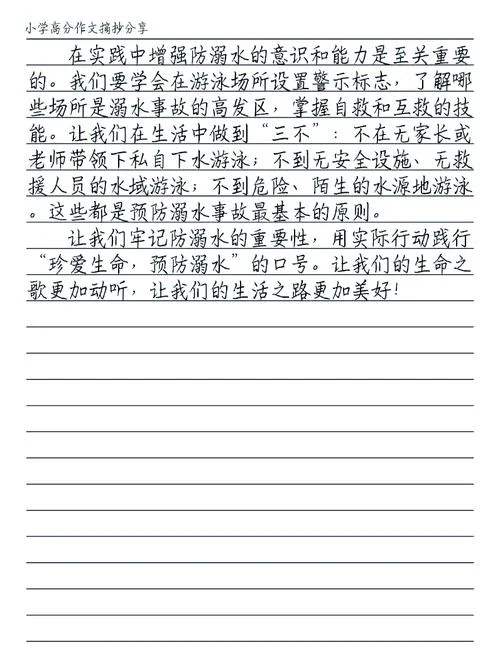 小学高分作文摘抄分享
在实践中增强防溺水的意识和能力是至关重要
的。我们要学会在游泳场所设置警示标志，了解哪
些场所是溺水事故的高发区，掌握自救和互救的技
能。让我们在生活中做到“三不”：不在无家长或
老师带领下私自下水游泳；不到无安全设施、无救
援人员的水域游泳；不到危险、陌生的水源地游泳
。这些都是预防溺水事故最基本的原则。
让我们牢记防溺水的重要性，用实际行动践行
“珍爱生命，预防溺水”的口号。让我们的生命之
歌更加动听，让我们的生活之路更加美好！